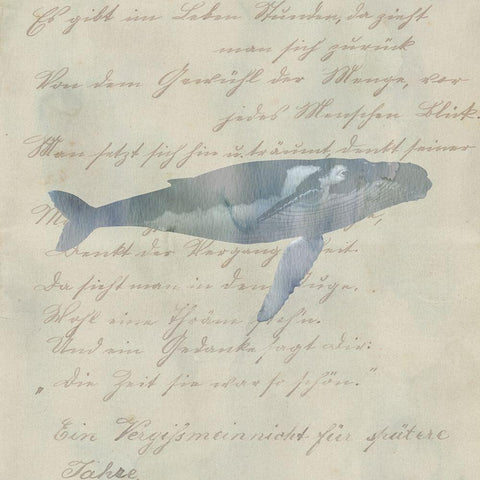 Es gibt im Leben Stunden, da zieht
man sich zurück
Von dem Gewühl der Menge, vor
jedes Menschen Blick.
Man setzt sich hin u. träumt, denkt seiner
Denkt der Vergang heit.
Da sieht man in dem Auge,
Wohl eine Thräm seh'n.
Und ein Gedanke sagt dir:
„Die Zeit sie war so schön."
Ein Vergißmeinnicht für spätere
Jahre.